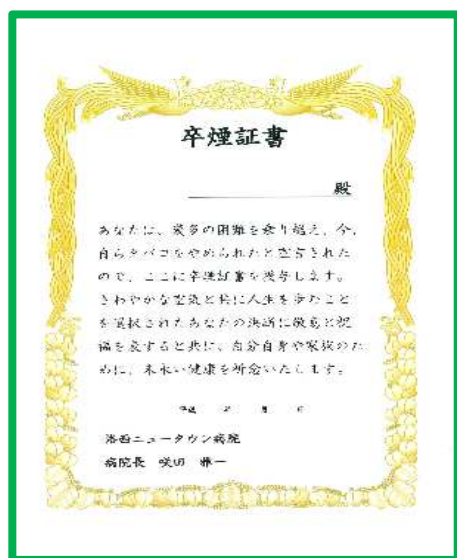 卒煙証書
殿
あなたは、幾多の困難を乗り越え、今、
自らタバコをやめられたと宣言された
ので、ここに卒煙証書を授与します。
さわやかな空気と共に人生を歩むこと
を選択されたあなたの決断に敬意と祝
福を表すると共に、自分自身や家族のた
めに、末永い健康を祈念いたします。
平成 年 月 日
洛西ニュータウン病院
病院長 咲田 雅一